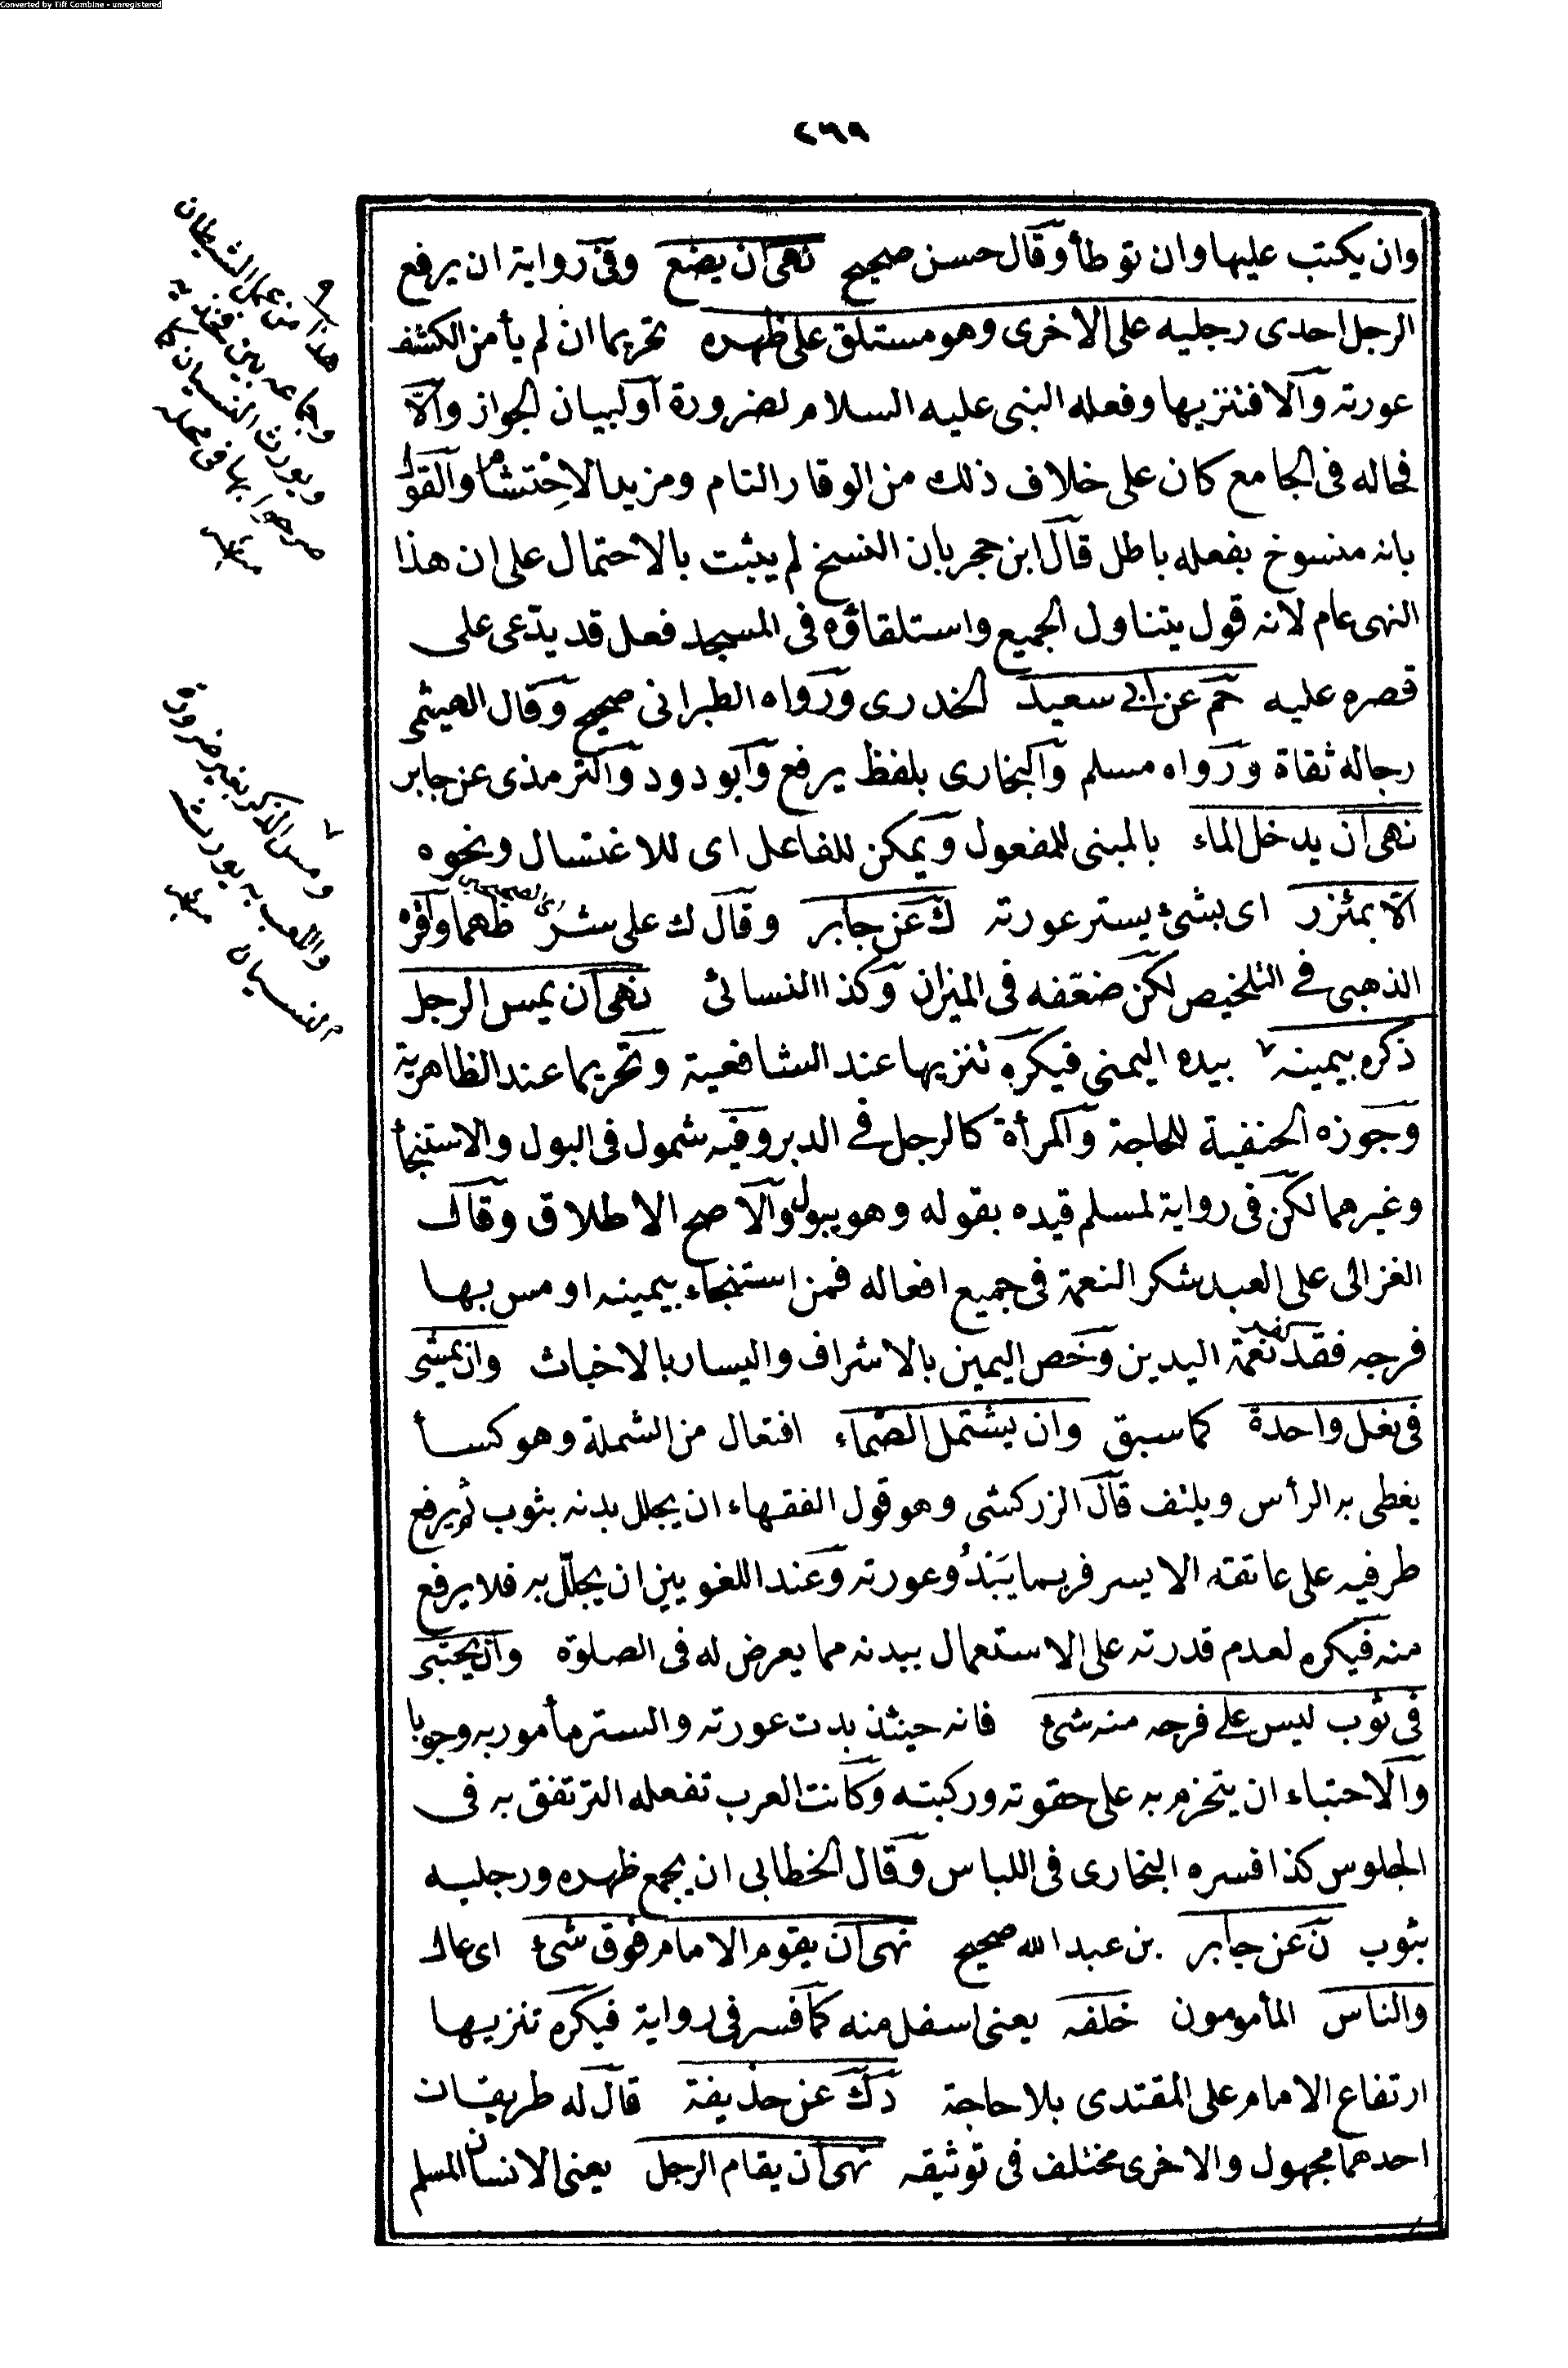 Converted by Tiff Combine - unregistered
٢٦٩
وان يكتب عليها وان توطأ وقال حسن صحيح نهى ان يضع وفى رواية ان يرفع
الرجل احدى رجليه على الاخرى وهو مستلق على ظهره تحريما ان لم يأمن الكشف
عورته والا فتنزيها وفعله النبى عليه السلام لضرورة أو لبيان الجواز والا
فحاله فى الجامع كان على خلاف ذلك من الوقار التام ومزيد الاحتشام والقول
بانه منسوخ بفعله باطل قال ابن حجر بان النسخ لم يثبت بالاحتمال على ان هذا
النهى عام لانه قول يتناول الجميع واستلقاؤه فى المسجد فعل قد يدّعى على
قصره عليه حم عن ابى سعيد الخدرى ورواه الطبرانى صحيح وقال الهيثمى
رجاله ثقاة ورواه مسلم والبخارى بلفظ يرفع وابو دود والترمذى عن جابر
نهى ان يدخل الماء بالمبنى للمفعول ويمكن للفاعل اى للاغتسال ونحوه
الا بمئزر اى بشئ يستر عورته ك عن جابر وقال ك على شرطهما واقره
الذهبى فى التلخيص لكن ضعّفه فى الميزان وكذا النسائى نهى ان يمس الرجل
ذكره بيمينه ٧ بيده اليمنى فيكره تنزيها عند الشافعية وتحريما عند الظاهرية
وجوزه الحنفية للحاجة والمرأة كالرجل فى الدبر وفيه شمول فى البول والاستنجأ
وغيرهما لكن فى رواية لمسلم قيده بقوله وهو يبول والاصح الاطلاق وقال
الغزالى على العبد شكر النعمة فى جميع افعاله فمن استنجاء بيمينه او مس بها
فرجه فقد كفر نعمة اليدين وخص اليمين بالاشراف واليسار بالاخباث وان يمشى
فى نعل واحدة كما سبق وان يشتمل الصماء افتعال من الشملة وهو كسأ
يغطى به الرأس ويلتف قال الزركشى وهو قول الفقهاء ان يجلل بدنه بثوب ثم يرفع
طرفيه على عاتقه الايسر فربما يَبْدُو عورته وعند اللغويين ان يجلّل به فلا يرفع
منه فيكره لعدم قدرته على الاستعمال بيدنه مما يعرض له فى الصلوة وان يحتبى
فى ثوب ليس على فرجه منه شئ فانه حينئذ بدت عورته والستر مأمور به وجوبا
والاحتباء ان يتحزم به على حقوته وركبته وكانت العرب تفعله الترتفق به فى
الجلوس كذا فسره البخارى فى اللباس وقال الخطابى ان يجمع ظهره ورجليه
بثوب ن عن جابر بن عبد الله صحيح نهى ان يقوم الامام فوق شئ اى عال
والناس المأمومون خلفه يعنى اسفل منه كما فسر فى رواية فيكره تنزيها
ارتفاع الامام على المقتدى بلا حاجة د ك عن حذيفة قال له طريقان
احدهما مجهول والاخرى مختلف فى توثيقه نهى ان يقام الرجل يعنى الانسان المسلم
هذا من عمل الشيطان
وجماعه بين
ويورث النسيان كما
صرحوا بها فى محله
٧
ومس الذكر بغير ضرورة
واللعب به يورث
النسيان